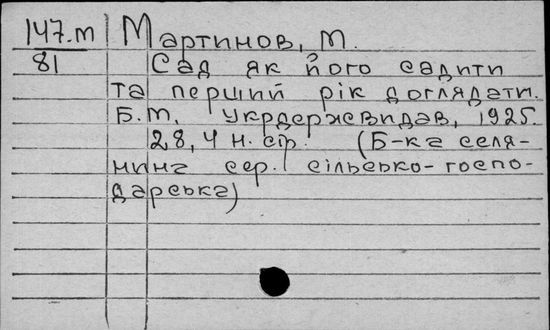 147.m Мартинов, М.
81 Сад як його садити
та перший рік доглядати.
Б.м., Укрдержвидав, 1925.
28, 4 н. стр. (Б-ка селя-
нина сер. сільсько-госпо-
дарська)